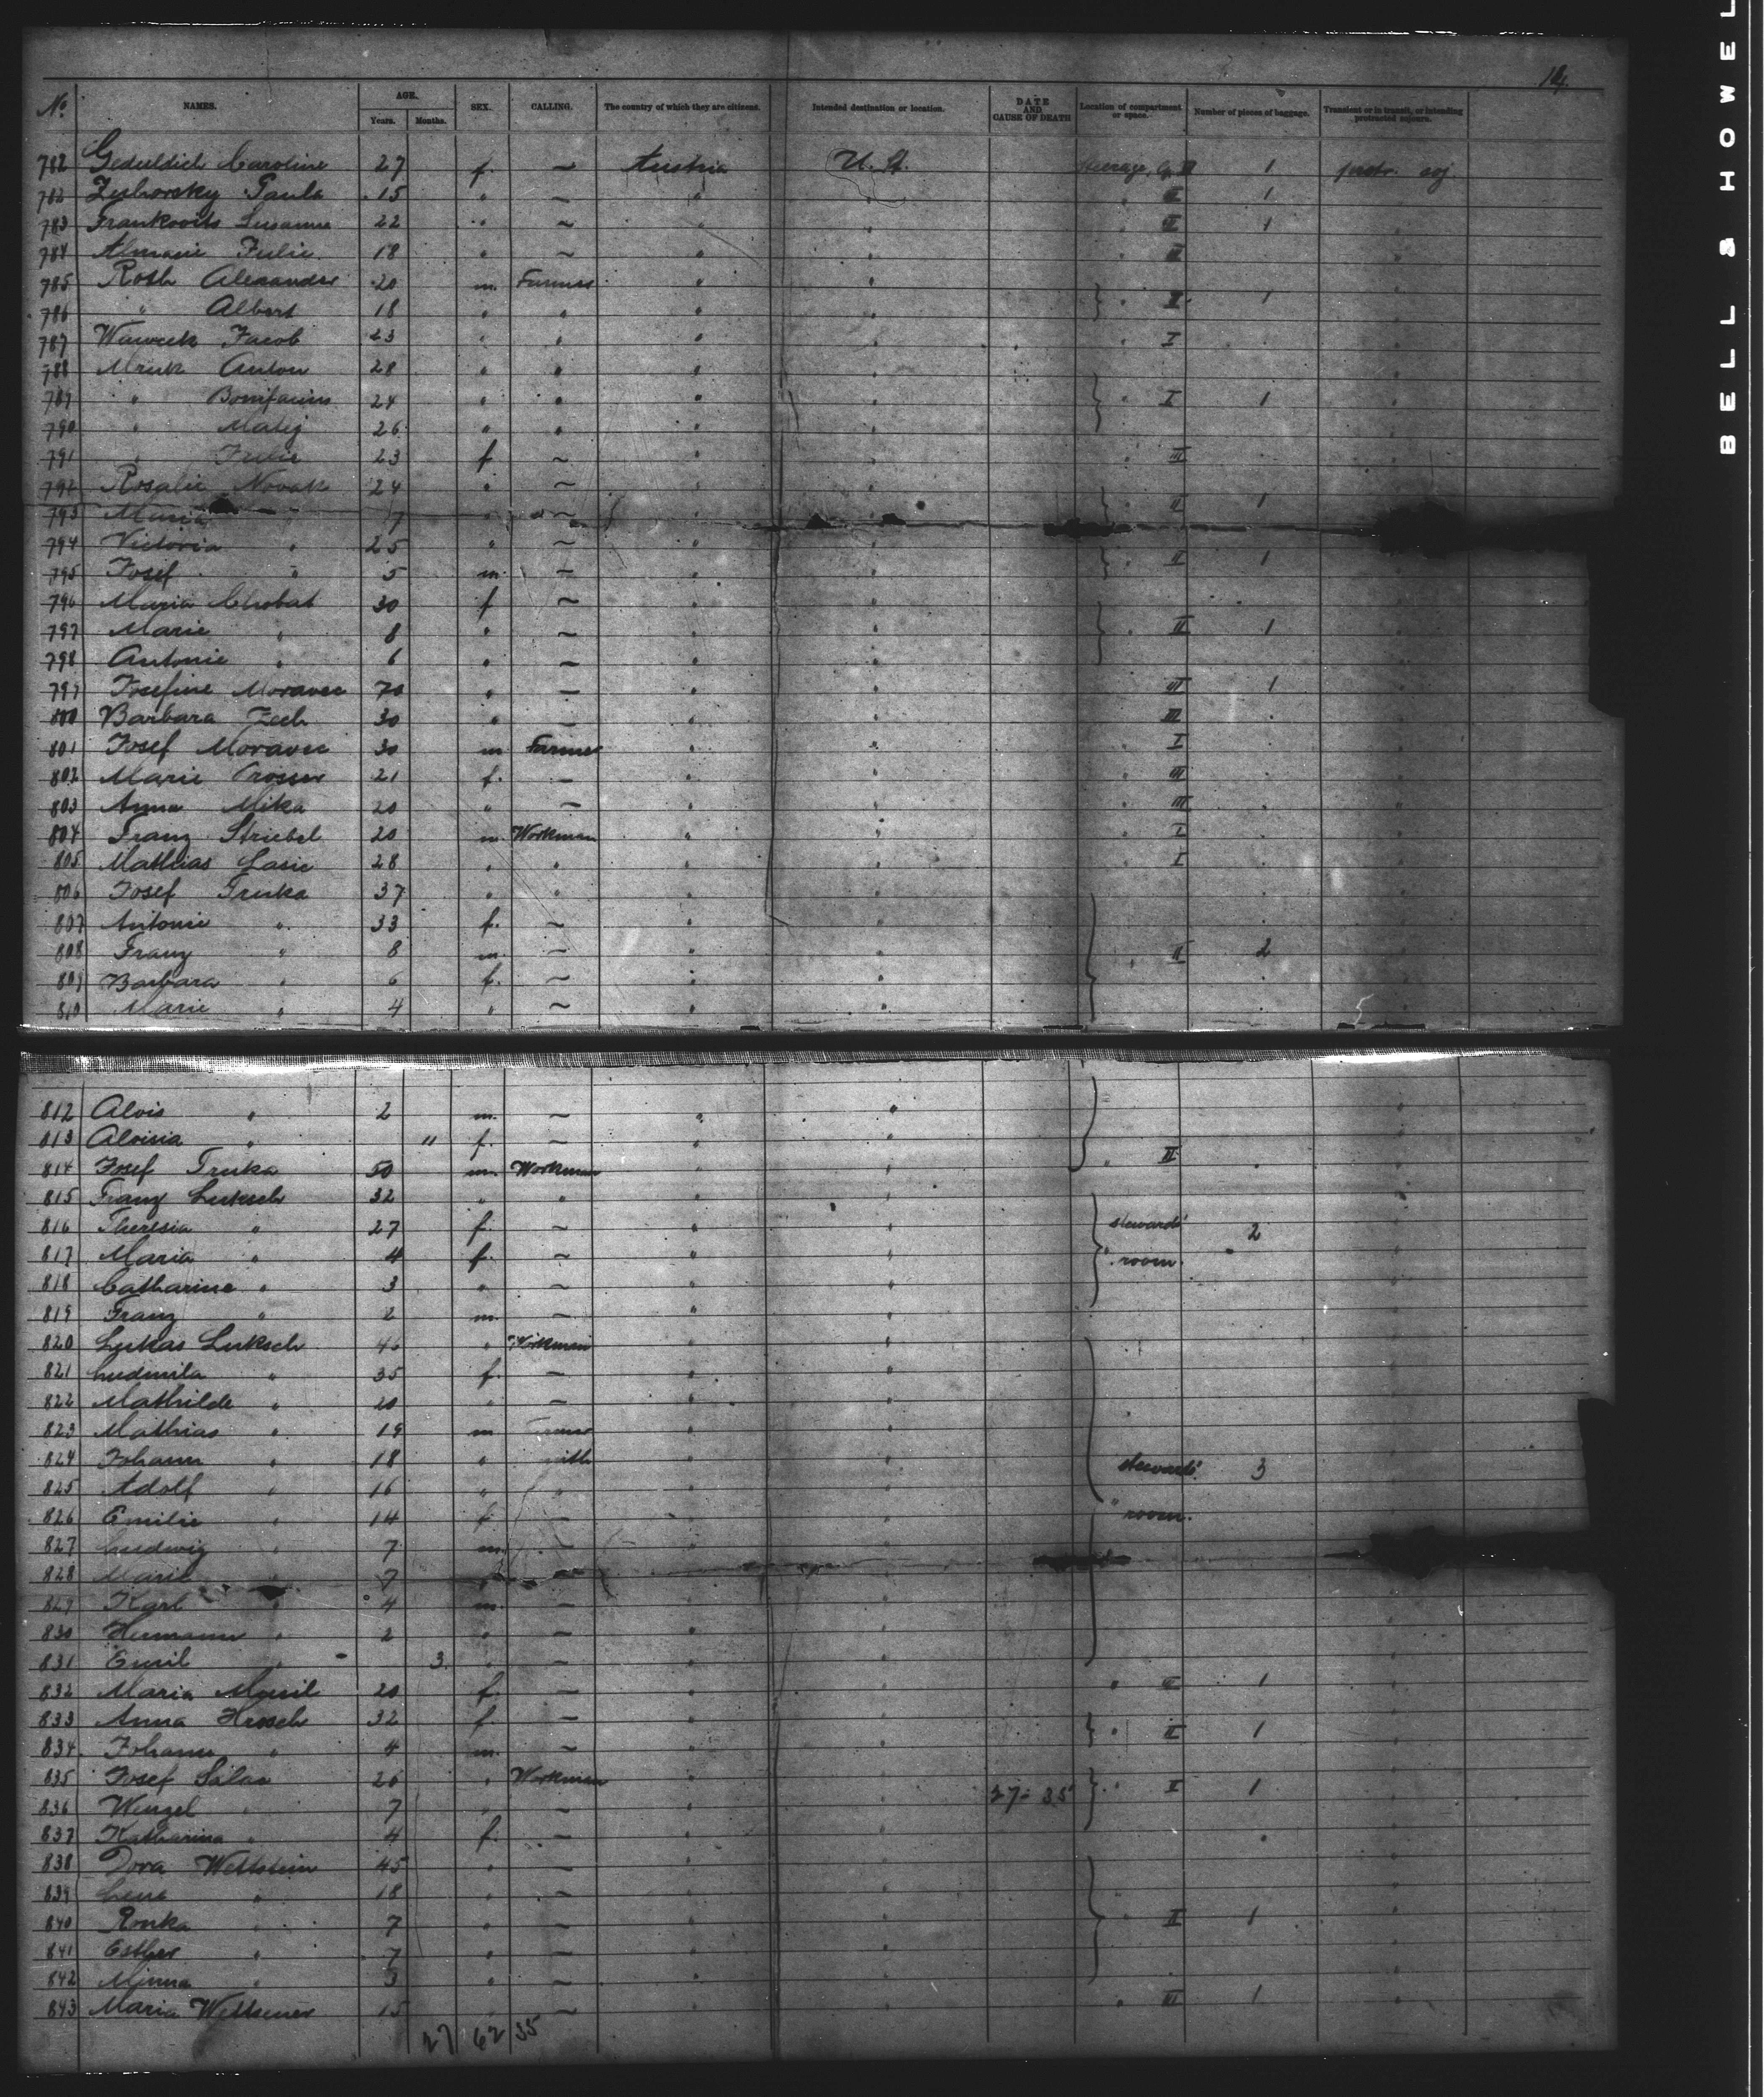 14.
No. NAMES. AGE. Years. Months. SEX. CALLING. The country of which they are citizens. Intended destination or location. DATE AND CAUSE OF DEATH Location of compartment or space. Number of pieces of baggage. Transient or in transit, or intending protracted sojourn.
782 Caroline 27 f. ~ Austria U. St. Steerage 1 protr. soj.
782 Paula 15 " ~ " " " III 1
783 Frankovits Susanne 22 " ~ " " " III 1 "
784 Julie 18 " ~ " " " III "
785 Roth Alexander 20 m. Farmer " "
786 " Albert 18 " " " " " I 1 "
787 Jacob 23 " " " " " I "
788 Mruk Anton 28 " " " "
789 " Bonifacius 24 " " " " " I 1 "
790 " Matij 26 " " " " "
791 " Julie 23 f ~ " " " III "
792 Rosalie Novak 24 " ~ " " " II 1
793 Maria " 7 " ~ " "
794 Victoria " 25 " ~ " " " II 1
795 Josef " 5 m. ~ " "
796 Maria Chobat 30 f ~ " "
797 Marie " 8 " ~ " " " II 1
798 Antonie " 6 " ~ " "
799 Josefine Moravec 70 " ~ " " III 1
800 Barbara Zech 30 " ~ " " III "
801 Josef Moravec 30 m Farmer " " " I
802 Marie 21 f. ~ " " " III "
803 Anna Mika 20 " ~ " " " III "
804 Franz Striebel 20 m Workman " " " I "
805 Mathias Lasic 28 " " " " " I "
806 Josef Truka 37 " " " "
807 Antonie " 33 f. ~ " "
808 Franz " 8 m. ~ " " " II 2 "
809 Barbara " 6 f. ~ " "
810 Marie " 4 " ~ " "
5
812 Alois " 2 m. ~ " "
813 Aloisia " 11 f. ~ " "
814 Josef Truka 50 m. Workman " " " II "
815 Franz Luksch 32 " " " "
816 Theresia " 27 f. ~ " " stewards' 2
817 Maria " 4 f. ~ " " room.
818 Catharine " 3 " ~ " "
819 Franz " 2 m. ~ " "
820 Lukas Luksch 46 " Workman " "
821 Ludmila " 35 f. ~ " "
822 Mathilde " 20 " ~ " "
823 Mathias " 19 m " "
824 Johann " 18 " " " stewards' 3
825 Adolf " 16 " " " "
826 Emilie " 14 f ~ " " room.
827 Ludwig " 7 m. ~ " "
828 Marie " 7 ~ " "
829 Karl " 4 m. ~ " "
830 Hermann " 2 " ~ " "
831 Emil " 3. " ~ " "
832 Maria Musil 20 f. ~ " " " III 1 "
833 Anna Hrosch 32 f. ~ " " " II 1
834 Johann " 4 m. ~ " "
835 Josef Salac 26 " Workman " " " II 1
836 Wenzel " 7 " ~ " " 27 - 35
837 Katharina " 4 f. ~ " "
838 Dora Wettstein 45 " ~ " "
839 Lena " 18 " ~ " "
840 Ronka " 7 " ~ " " " II 1
841 Esther " 7 " ~ " "
842 Minna " 5 " ~ " "
843 Maria 15 " ~ " " " III 1 "
27 62 35
BELL & HOWEL